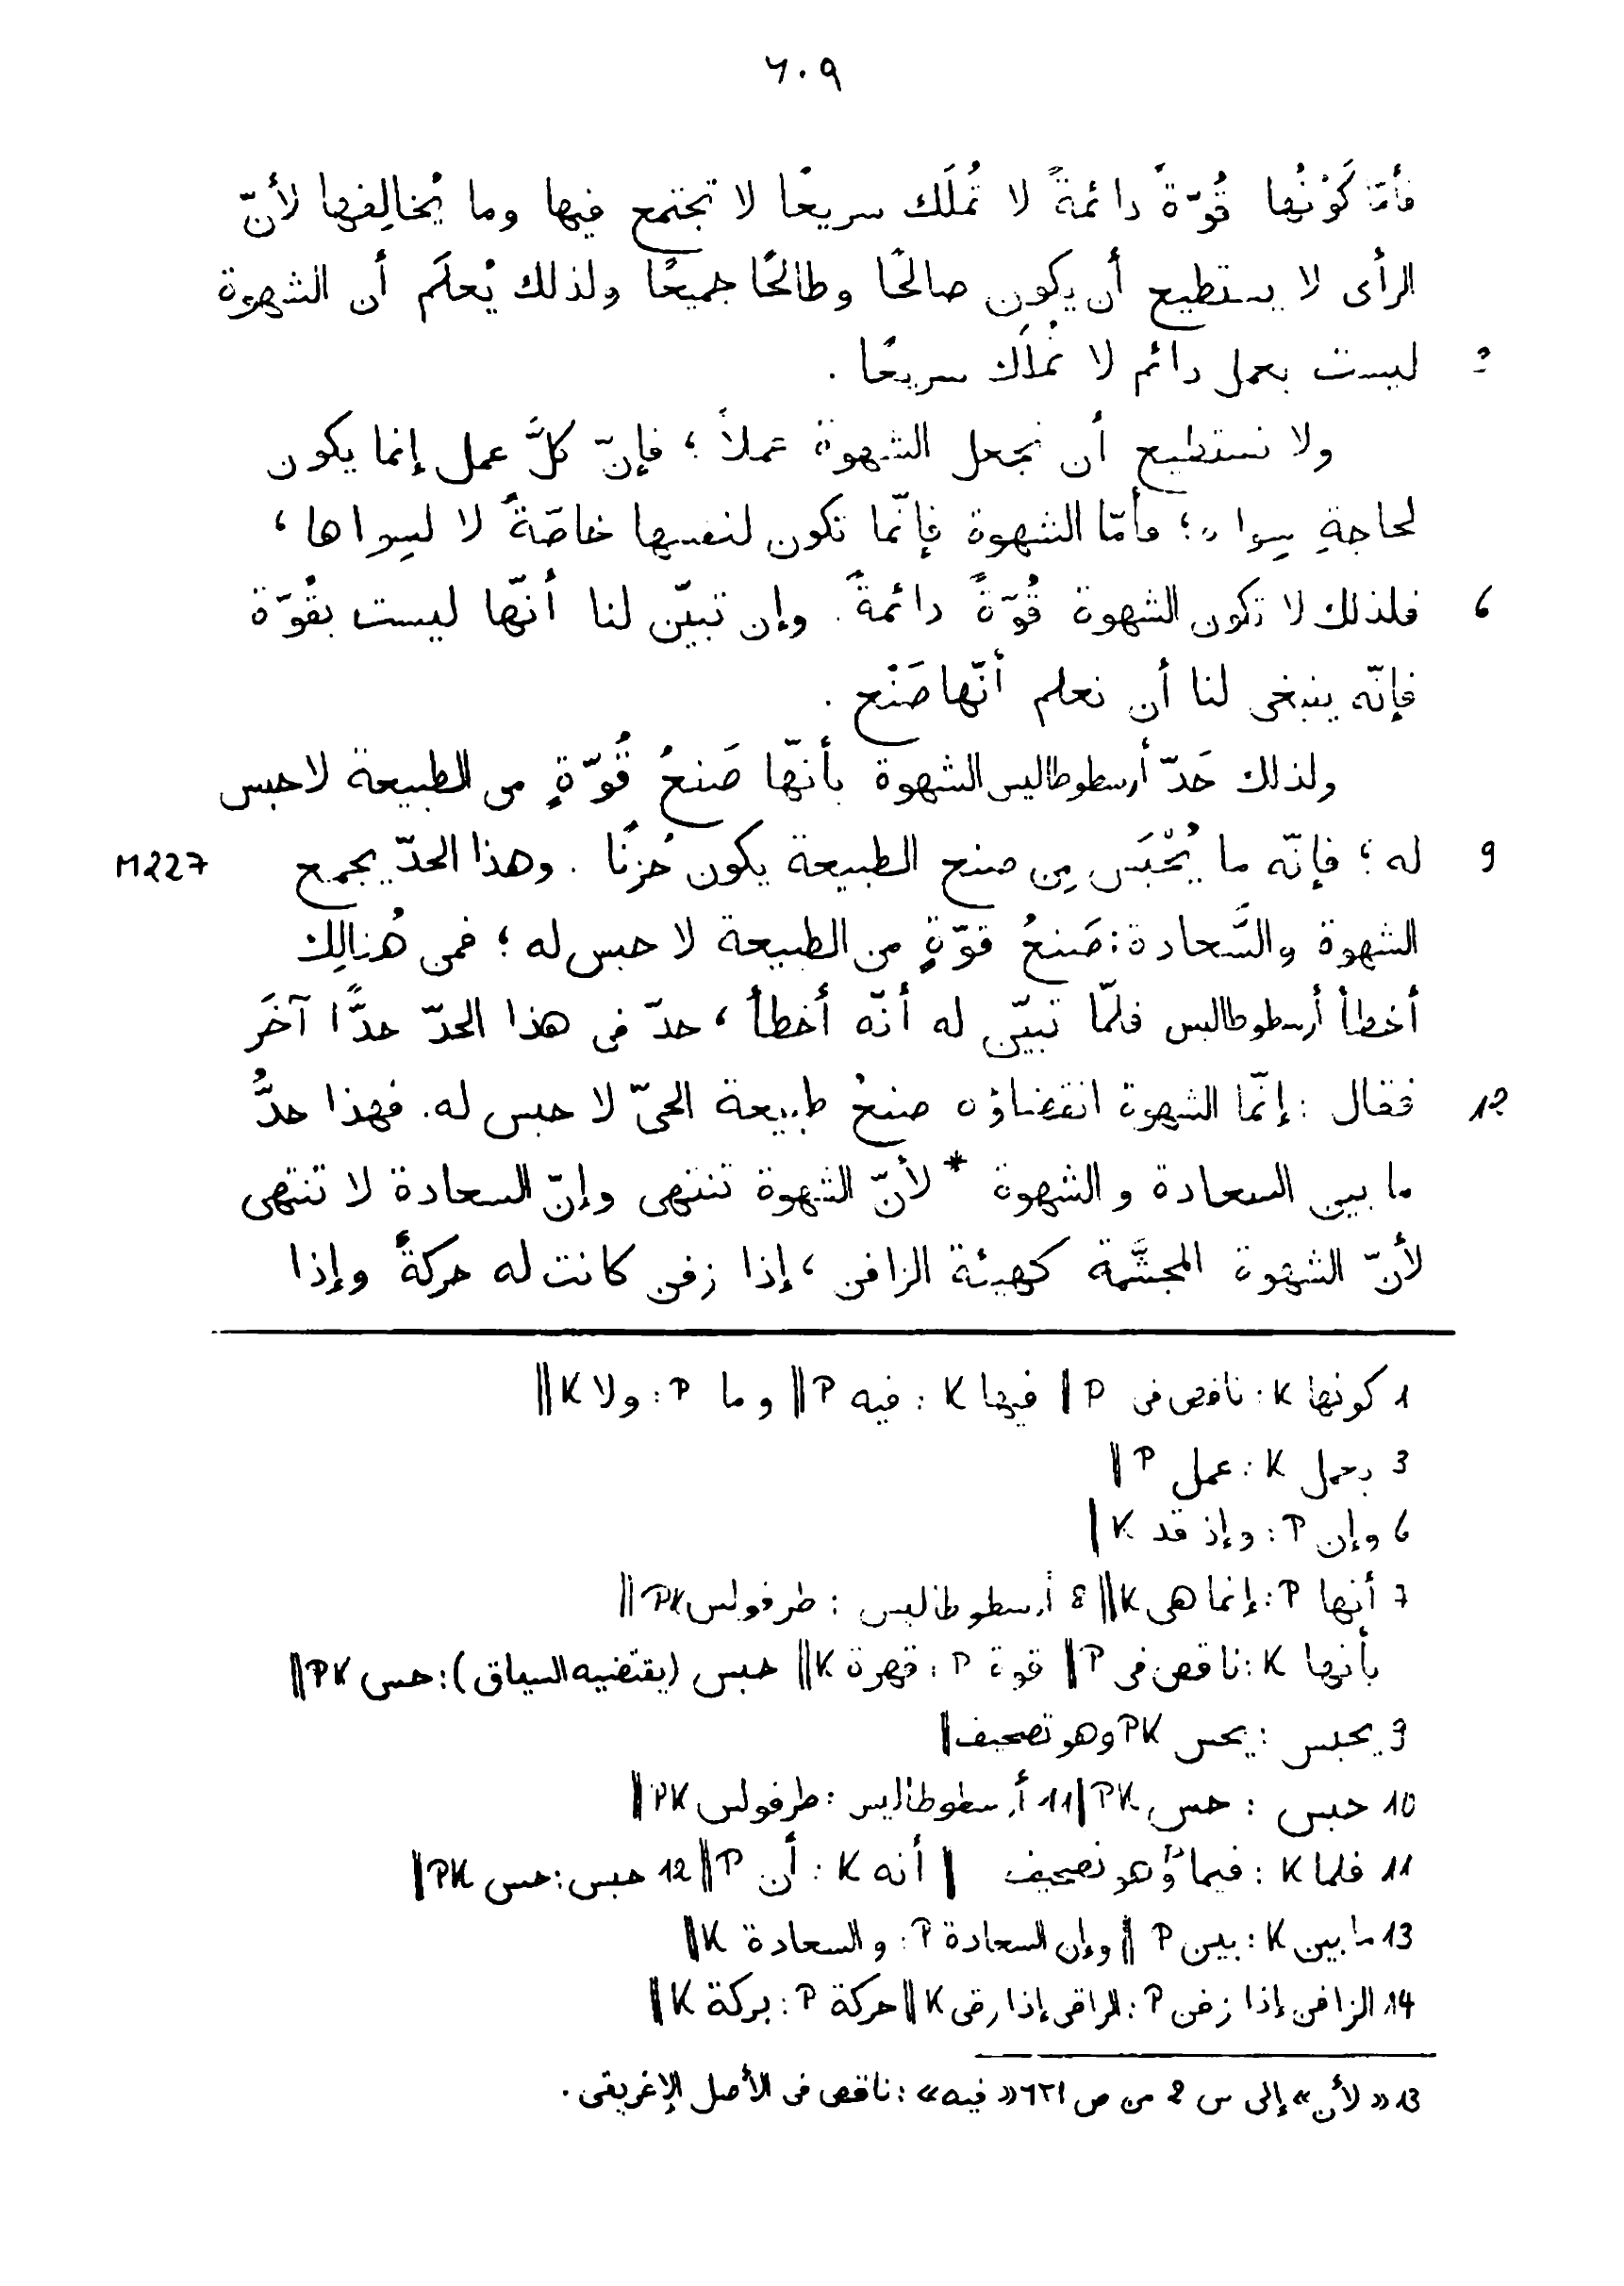 ٢٠٩
فأمّا كَوْنُها قُوّةً دائمةً لا تُملَك سريعًا لا تجتمع فيها وما يُخالِفها لأنّ
الرأى لا يستطيع أن يكون صالحًا وطالحًا جميعًا ولذلك يُعلَم أن الشهوة
3 ليست بعمل دائم لا تُملَك سريعًا .
ولا نستطيع أن نجعل الشهوة عملاً ؛ فإنّ كلَّ عمل إنما يكون
لحاجةِ سِواه ؛ فأمّا الشهوة فإنّما تكون لنفسها خاصّةً لا لسِواها ،
6 فلذلك لا تكون الشهوة قُوّةً دائمةً . وإن تبيّن لنا أنّها ليست بقُوّة
فإنّه ينبغى لنا أن نعلم أنّها صَنْع .
ولذلك حَدّ أرسطوطاليس الشهوة بأنّها صَنعُ قُوّةٍ من الطبيعة لا حبس
9 له ؛ فإنّه ما يُحْبَس مِن صنع الطبيعة يكون حُزنًا . وهذا الحدّ يجمع M227
الشهوة والسَّعادة : صَنعُ قوّةٍ من الطبيعة لا حبس له ؛ فمن هُنالِك
أخطأ أرسطوطاليس فلمّا تبيّن له أنّه أخطأ ، حدّ فى هذا الحدّ حدًّا آخَر
12 فقال : إنّما الشهوة انقضاؤه صنعُ طبيعة الحىّ لا حبس له . فهذا حدُّ
ما بين السعادة والشهوة * لأنّ الشهوة تنتهى وإنّ السعادة لا تنتهى
لأنّ الشهوة المجشَّمة كهيئة الزافن ، إذا زفن كانت له حركةً وإذا
1 كونها K : ناقص فى P || فيها K : فيه P || وما P : ولا K ||
3 بعمل K : عمل P ||
6 وإن P : وإذ قد K |
7 أنها P : إنما هى K || 8 أرسطوطاليس : طرفولس PK ||
بأنها K : ناقص فى P || قوة P : قهرة K || حبس (يقتضيه السياق) : حس PK ||
9 يحبس : يحس PK وهو تصحيف ||
10 حبس : حس PK || 11 أرسطوطاليس : طرفولس PK ||
11 فلما K : فيما P وهو تصحيف || أنه K : أن P || 12 حبس : حس PK ||
13 ما بين K : بين P || وإن السعادة P : والسعادة K ||
14 الزافن إذا زفن P : الراقى إذا رقى K || حركة P : بركة K ||
13 « لأن » إلى س 2 من ص ٦٢١ « فيه » : ناقص فى الأصل الإغريقى .